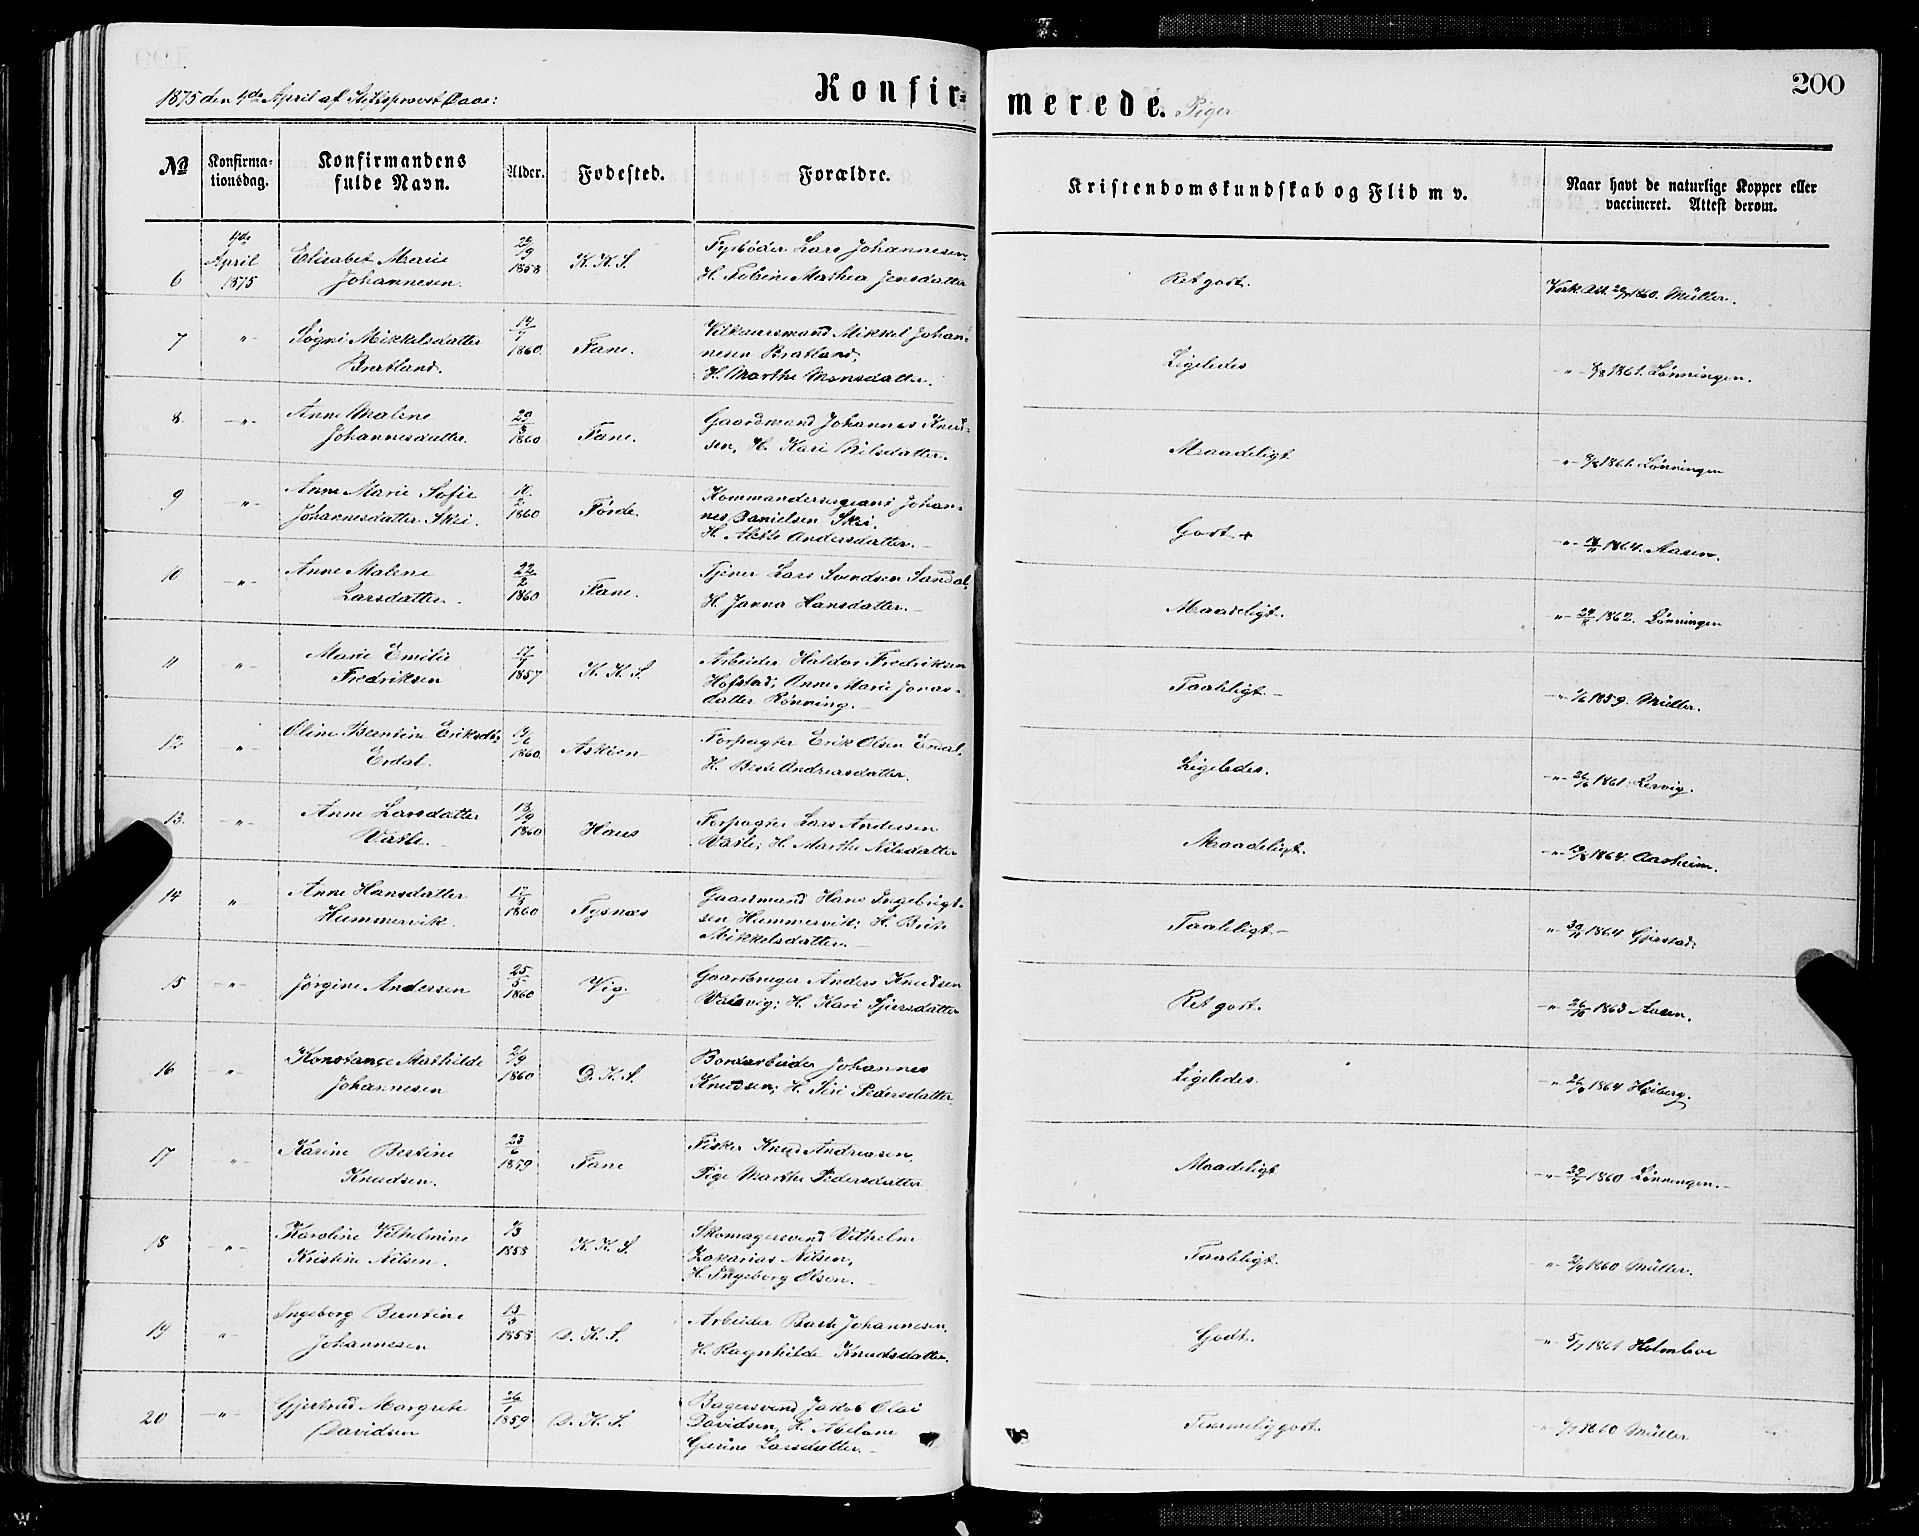 200
1875 den 4de April af Stiftsprovst Daae:
Konfir-
merede. Piger
No
Konfirma-
tionsdag.
Konfirmandens
fulde Navn.
Alder.
Fødested.
Forældre.
Kristendomskundskab og Flid m v.
Naar havt de naturlige Kopper eller
vaccineret. Attest derom.
6
4de
April
1875
Elisabet Marie
Johannesen.
1858
K. K. S.
Fyrbøder Lars Johannesen.
H. Mathea Jensdatter
Ret godt.
1860. Müller.
7
-"-
Søgni Mikkelsdatter
Bratland.
1860.
Fane.
Vilkaarsmand Mikkel Johan-
nesen Bratland,
H. Marthe Monsdatter.
Ligeledes
-"- 1861. Lønningen.
8.
-"-
Anne Malene
Johannesdatter.
1860
Fane.
Gaardmand Johannes Knud-
sen, H. Kari Nilsdatter.
Maadeligt
-"- 1861. Lønningen
9
-"-
Anne Marie Sofie
Johannesdatter Skei.
1860
Førde.
Kommandersergeant Johan-
nes Danielsen Skei.
H. Andersdatter.
Godt +
-"- 1864. Aasen.
10
-"-
Anne Malene
Larsdatter.
22/2
1860
Fane.
Tjener Lars Svendsen Sandal,
H. Janna Hansdatter.
Maadeligt.
-"- 1862. Lønningen
11
-"-
Marie Emilie
Fredriksen
1857
K. K. S.
Arbeider Haldor Fredriksen
Hofstad; Anne Marie Jonas-
datter Rønning.
Taaleligt
-"- 1859. Müller.
12
-"-
Oline Berntine Eriksdtr
Erdal.
1860.
Askøen
Forpagter Erik Olsen Erdal,
H. Andreasdatter.
Ligeledes.
-"- 1861. Lervig.
13.
-"-
Anne Larsdatter
Vatle.
1860
Haus
Forpagter Lars Andersen
Vatle; H. Marthe Nilsdatter
Maadeligt.
-"- 1864. Aarheim.
14
-"-
Anne Hansdatter
Hummervik.
1860
Tysnæs
Gaardmand Hans Ingebrigt-
sen Hummervik; H. Brite
Mikkelsdatter.
Taaleligt.
-"- 1864 Gjerstad.
15
-"-
Jørgine Andersen
25/5
1860
Vig.
Gaardbruger Anders Knudsen
H. Kari
Ret godt.
-"- 1863 Aasen.
16
-"-
Konstance Mathilde
Johannesen
1860
D. K. S.
Bordarbeider Johannes
Knudsen; H. Siri Pedersdatter.
Ligeledes
-"- 1864 Heiberg.
17
-"-
Karine Bertine
Knudsen.
23/6
1859
Fane
Fisker Knud Andreasen,
Pige Marthe Pedersdatter
Maadeligt
-"- 1860 Lønningen.
18
-"-
Karoline Vilhelmine
Kristine Nilsen.
1858
K. K. S.
Skomagersvend Vilhelm
Zakarias Nilsen,
H. Ingeborg Olsen.
Taaleligt.
-"- 1860 Müller.
19
-"-
Ingeborg Berntine
Johannesen
1858
D. K. S.
Arbeider Johannesen,
H. Ragnhilde Knudsdatter.
Godt.
-"- 1861
20
-"-
Gjertrud Margrete
Davidsen
26/1
1859
D. K. S.
Bagersvend Jakob Olai
Davidsen, H. Abelone
Gurine Larsdatter.
Temmelig godt.
1860 Müller